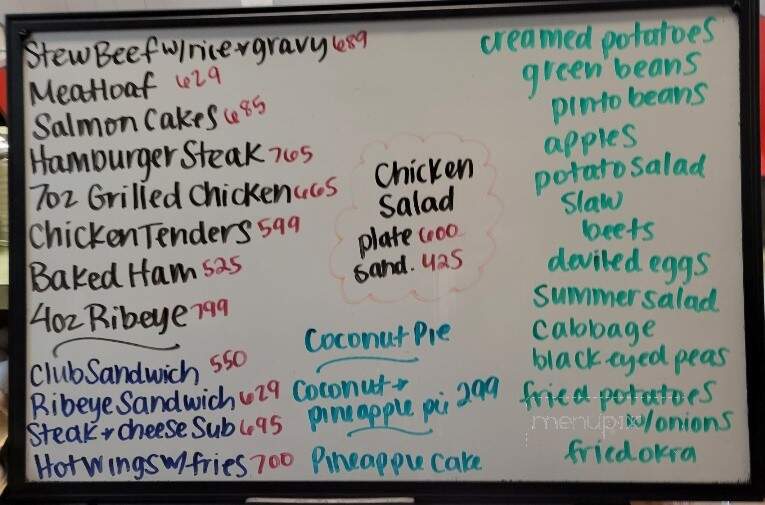 Stew Beef w/rice + gravy 689
Meatloaf 629
Salmon Cakes 685
Hamburger Steak 765
7oz Grilled Chicken 665
Chicken Tenders 599
Baked Ham 525
4oz Ribeye 799
Club Sandwich 550
Ribeye Sandwich 629
Steak + cheese Sub 695
Hot Wings w/fries 700
Chicken
Salad
plate 600
sand. 425
Coconut Pie
Coconut +
pineapple pie 299
Pineapple Cake
creamed potatoes
green beans
pinto beans
apples
potato salad
slaw
beets
deviled eggs
summer salad
cabbage
black eyed peas
fried potatoes
w/onions
fried okra
menupix